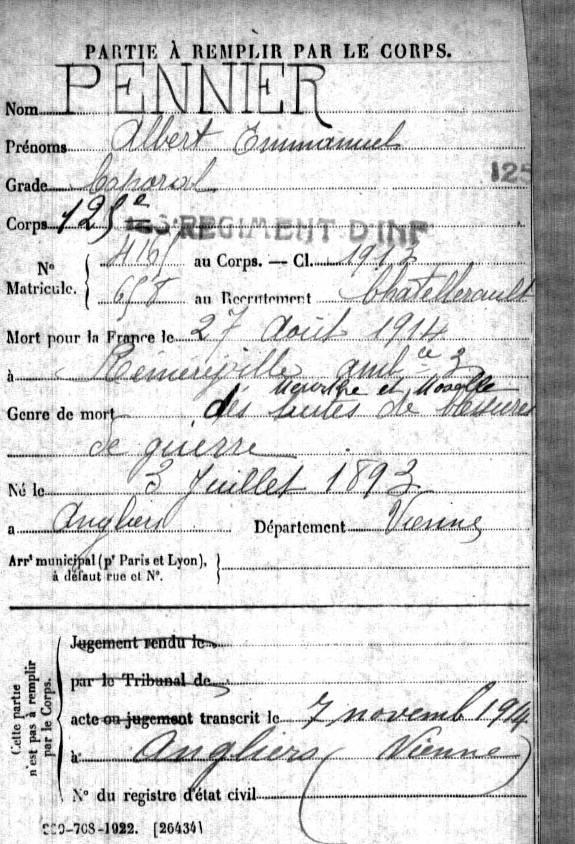 PARTIE À REMPLIR PAR LE CORPS.
Nom PENNIER
Prénoms Albert Emmanuel
Grade Caporal
125
Corps 125e RÉGIMENT D'INF
Nº Matricule. { 4167 au Corps. — Cl. 1913
658 au Recrutement Chatellerault
Mort pour la France le 27 Août 1914
à Réméréville ambce 3
Meurthe et Moselle
Genre de mort des suites de blessures
de guerre
Né le 3 Juillet 1893
à Angliers Département Vienne
Arrt municipal (pr Paris et Lyon), à défaut rue et Nº. }
Cette partie n'est pas à remplir par le Corps.
Jugement rendu le
par le Tribunal de
acte ou jugement transcrit le 7 novemb 1914
à Angliers (Vienne)
Nº du registre d'état civil
-708-1922. [26434]